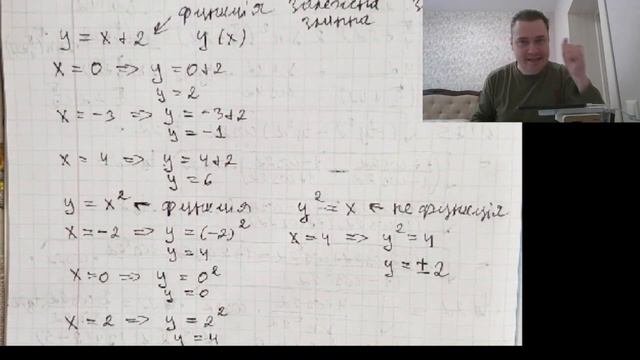 функція залежна
змінна
y = x + 2 y(x)
x = 0 => y = 0+2
y = 2
x = -3 => y = -3+2
y = -1
x = 4 => y = 4+2
y = 6
y = x² ← функція
x = -2 => y = (-2)²
y = 4
x = 0 => y = 0²
y = 0
x = 2 => y = 2²
y = 4
y² = x ← не функція
x = 4 => y² = 4
y = ±2